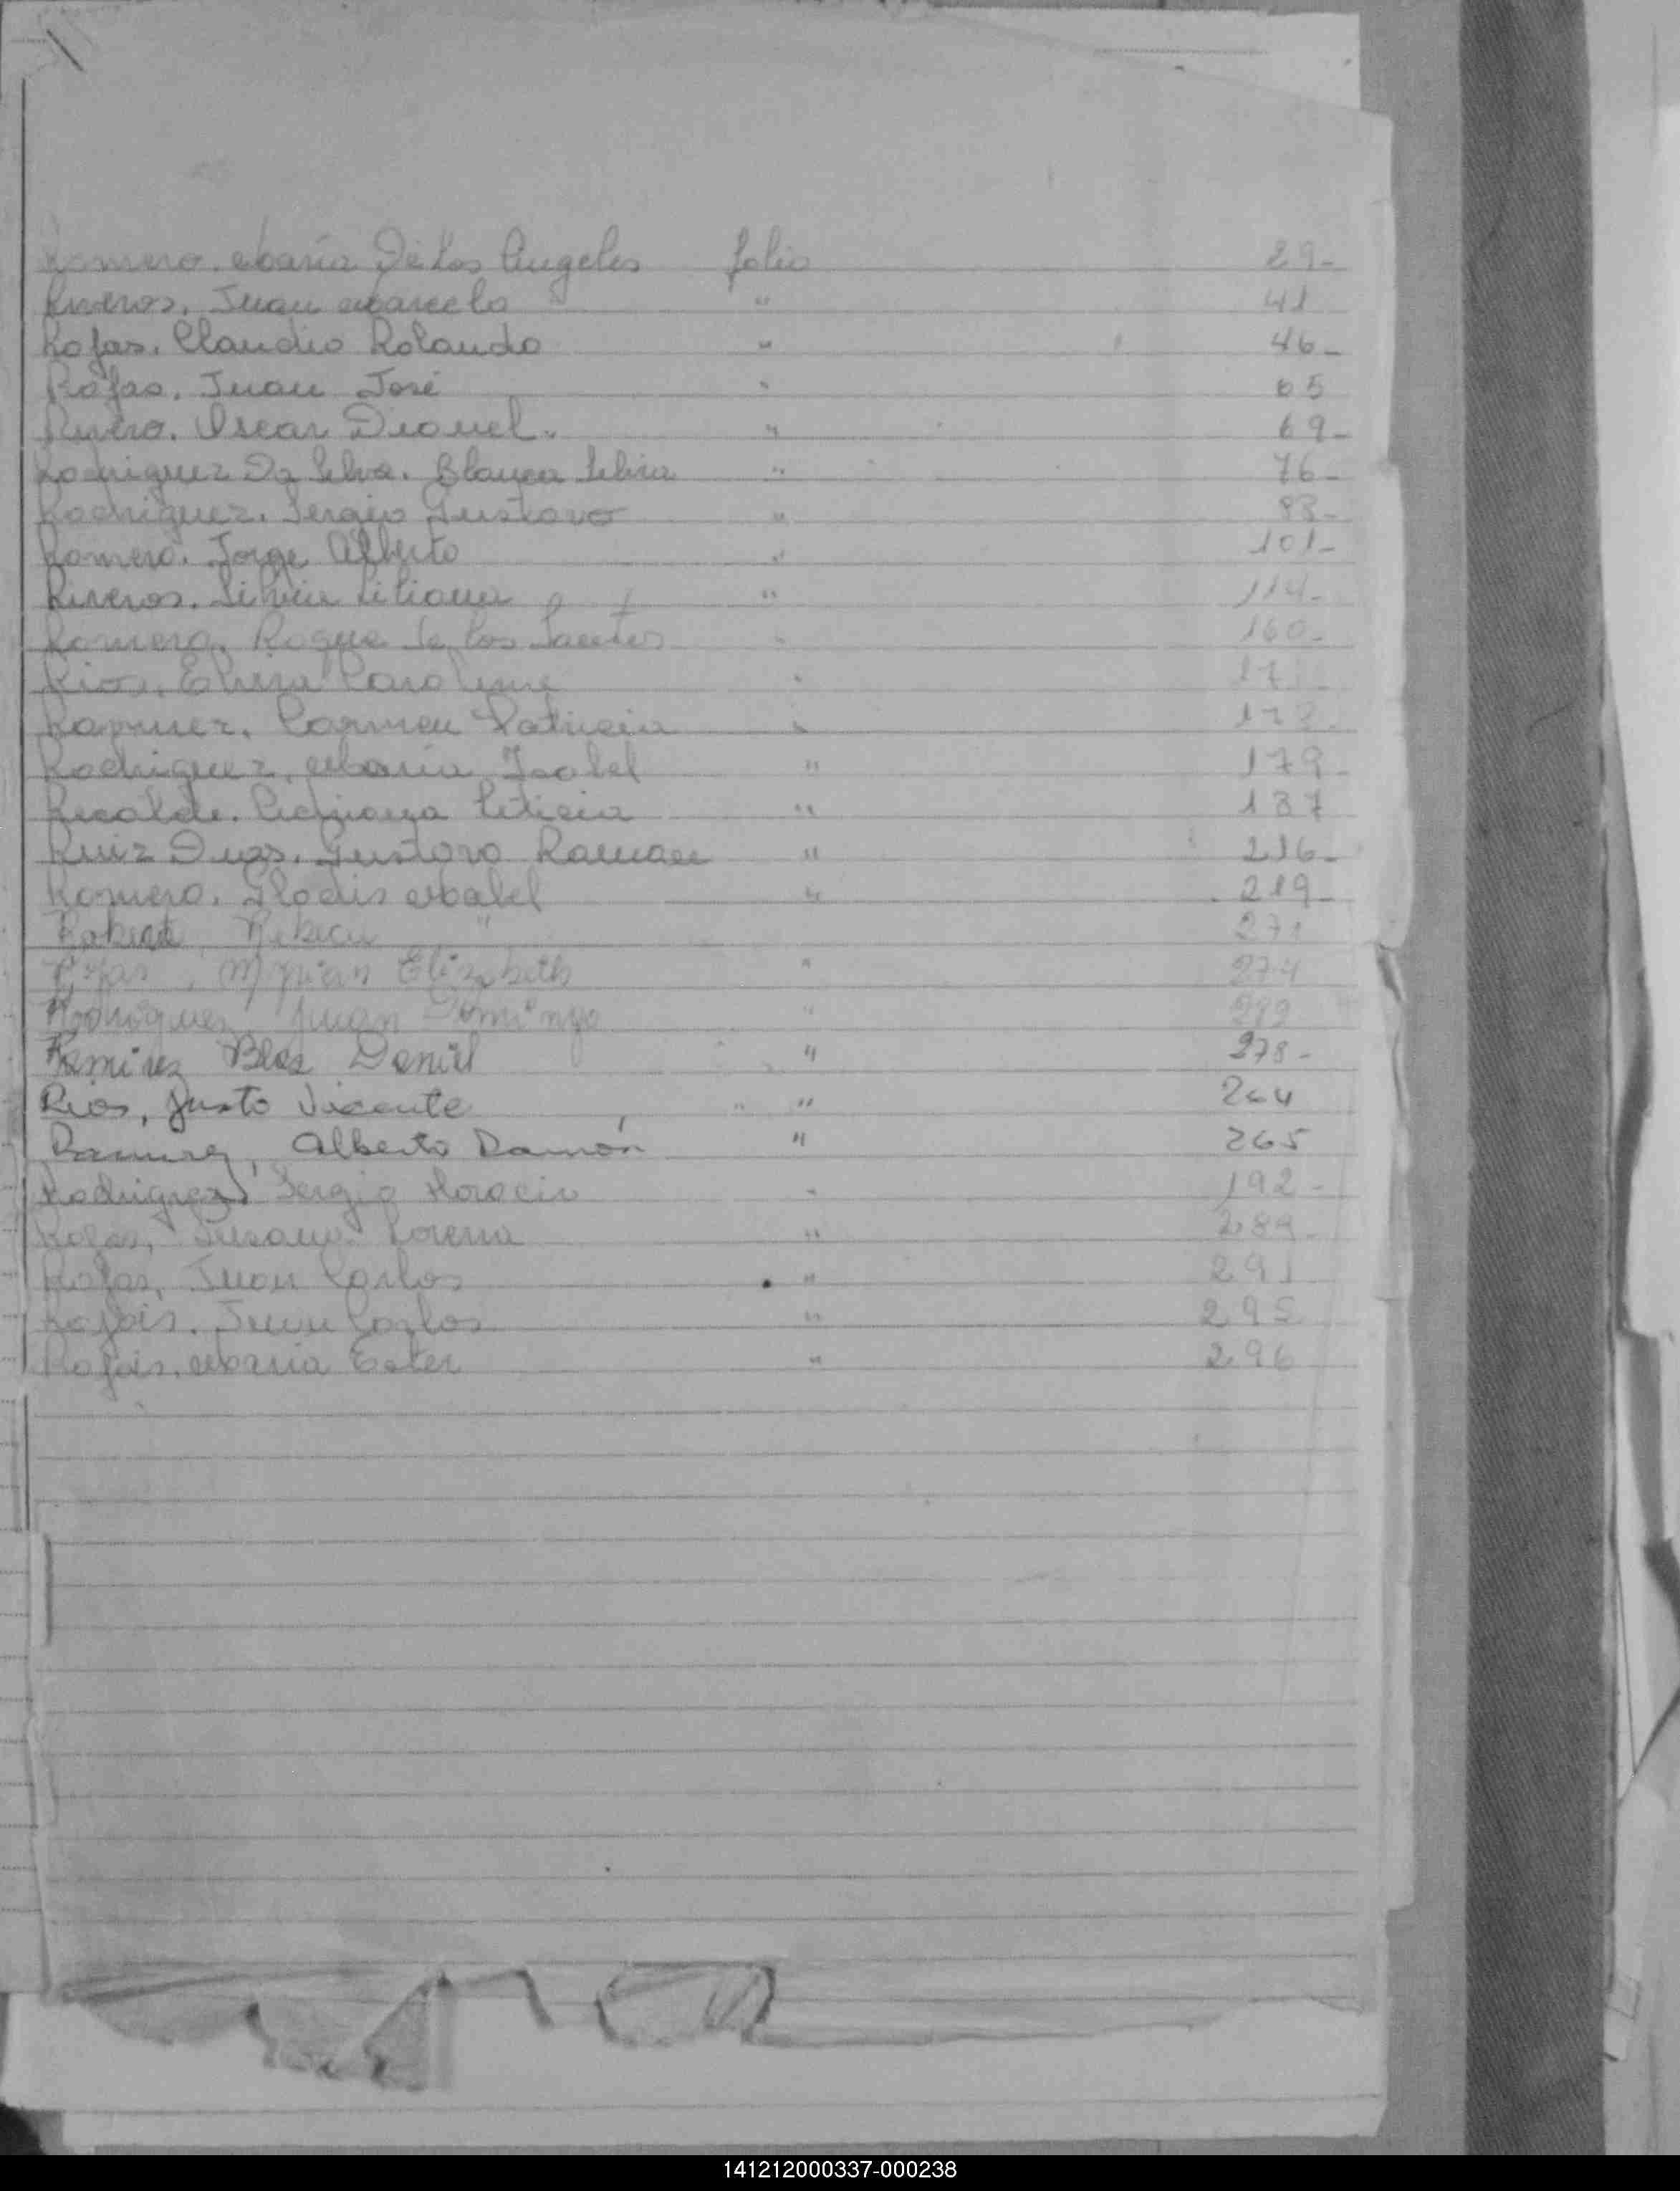 Romero. María De Los Angeles folio 29-
Riveros. Juan Marcelo " 41
Rojas. Claudio Rolando " 46-
Rojas. Juan José " 65
Rivero. Oscar Dionel. " 69-
Rodriguez Da Silva. Blanca Silvia " 76-
Rodriguez. Sergio Gustavo " 93-
Romero. Jorge Alberto " 101-
Riveros. Silvia Liliana " 114-
Romero. Roque de los Santos " 160-
Rios. Elvira " 171
Carmen Patricia "
Rodriguez. María Isabel " 179-
Recalde. Adriana Leticia " 187
Ruiz Dias. Gustavo Ramon " 216-
Romero. Gladis Mabel " 219-
Rebeca " 271
Rojas, Myrian Elizabeth " 274
Rodriguez Juan Domingo "
Ramirez Blas Daniel " 278-
Rios, Justo Vicente " 264
Ramirez, Alberto Ramón " 265
Rodriguez, Sergio Horacio " 192-
Rojas, Susana Lorena " 289-
Rojas, Juan Carlos " 291
Rojas. Juan Carlos " 295
Rojas. María Ester " 296
141212000337-000238